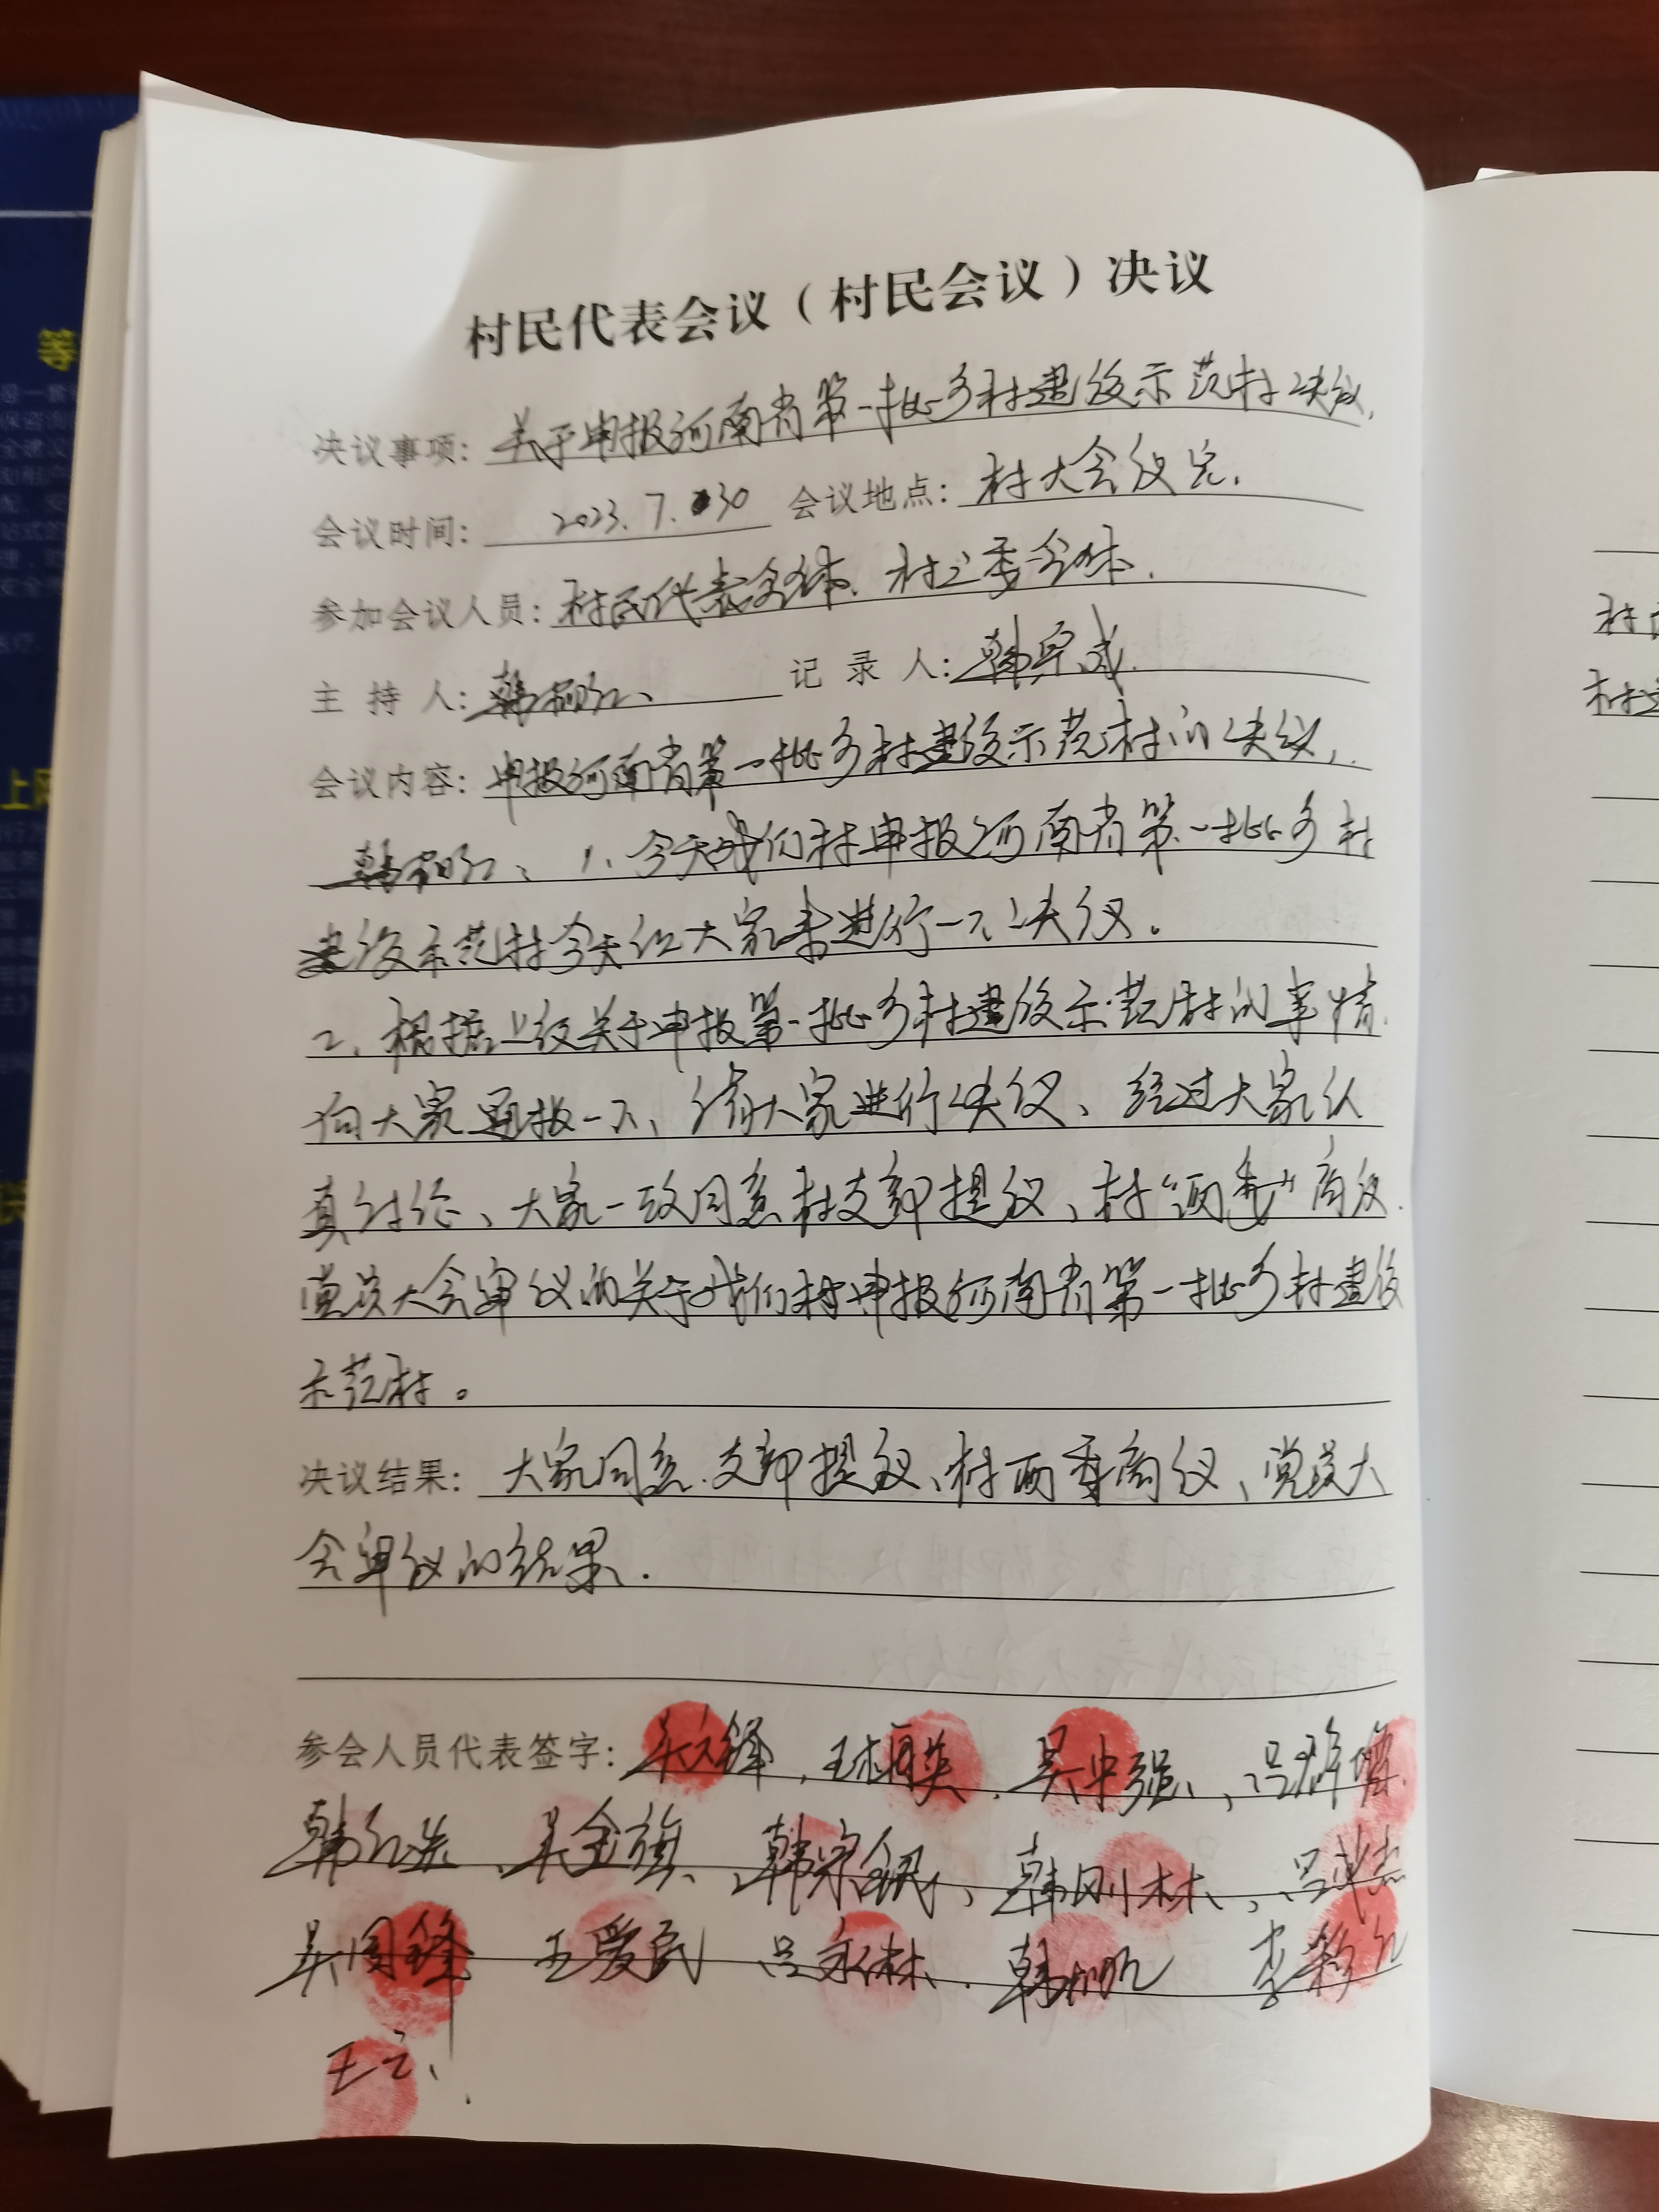 村民代表会议（村民会议）决议
决议事项：关于申报河南省第一批乡村建设示范村决议.
会议时间：2023.7.30 会议地点：村大会议室.
参加会议人员：村民代表全体、村三委全体.
主持人：韩丽红、 记录人：韩宗成.
会议内容：申报河南省第一批乡村建设示范村的决议,.
韩丽红：1、今天我们村申报河南省第一批乡村
建设示范村今天让大家来进行一下决议。
2、根据上级关于申报第一批乡村建设示范村的事情
向大家通报一下、请大家进行决议、经过大家认
真讨论、大家一致同意村支部提议、村“两委”商议.
党员大会审议的关于我们村申报河南省第一批乡村建设
示范村。
决议结果：大家同意.支部提议、村两委商议、党员大
会审议的结果.
参会人员代表签字：吴文锋, 吴中强、,
吴金旗、韩宗银、韩刚林、,
吴国锋 王爱民 吕永林、.
等
上网